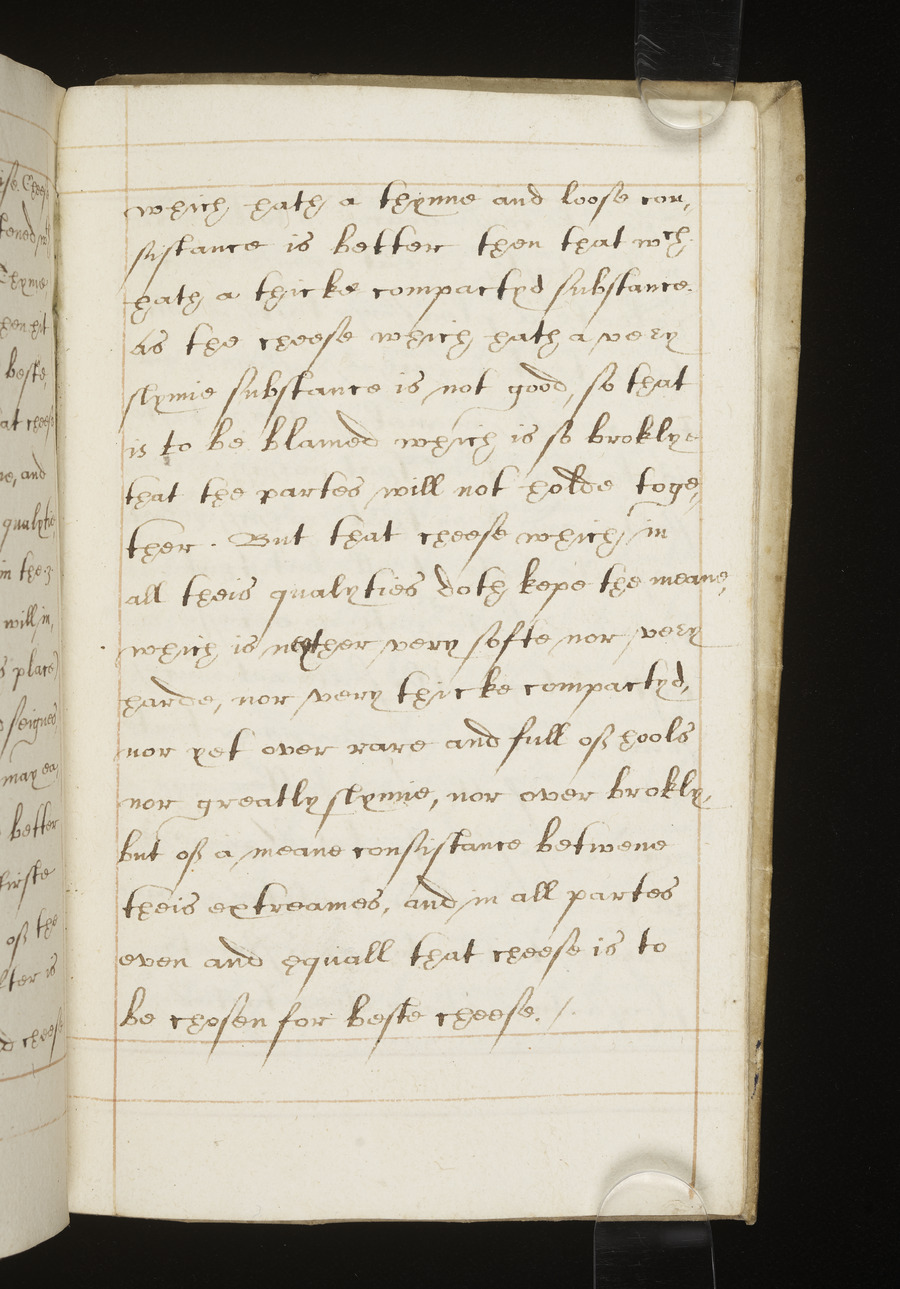 which hath a thynne and loose con,
sistance is better then that wch
hath a thicke compactyd substance.
As the cheese which hath a very
slymie substance is not good, so that
is to be blamed which is so broklye
that the partes will not holde toge,
ther. But that cheese which in
all theis qualyties doth kepe the meane,
which is neyther very softe nor very
harde, nor very thicke compactyd,
nor yet over rare and full off hools
nor greatly slymie, nor over brokly,
but off a meane consistance betwene
theis extreames, and in all partes
even and equall that cheese is to
be chosen for beste cheese. /
tened
Thyme,
then hit
beste,
at cheese
ne, and
in the 3
will in,
s place)
may ea,
better
firste
off the
lter is
cheese